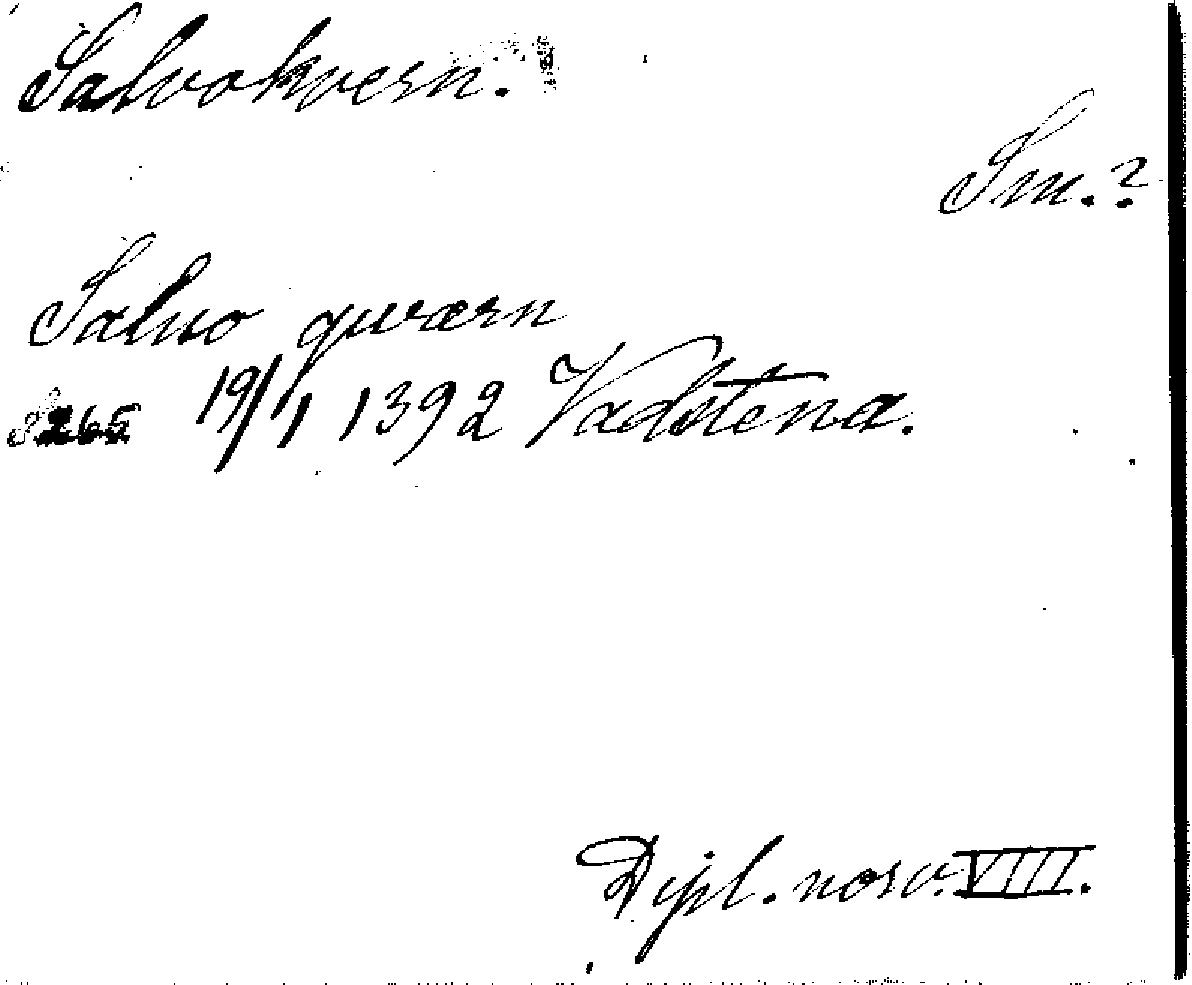 Salvokvern.
Sm.?
Salvo qværn
S 265 19/1 1392 Vadstena.
Dipl. norv. VIII.